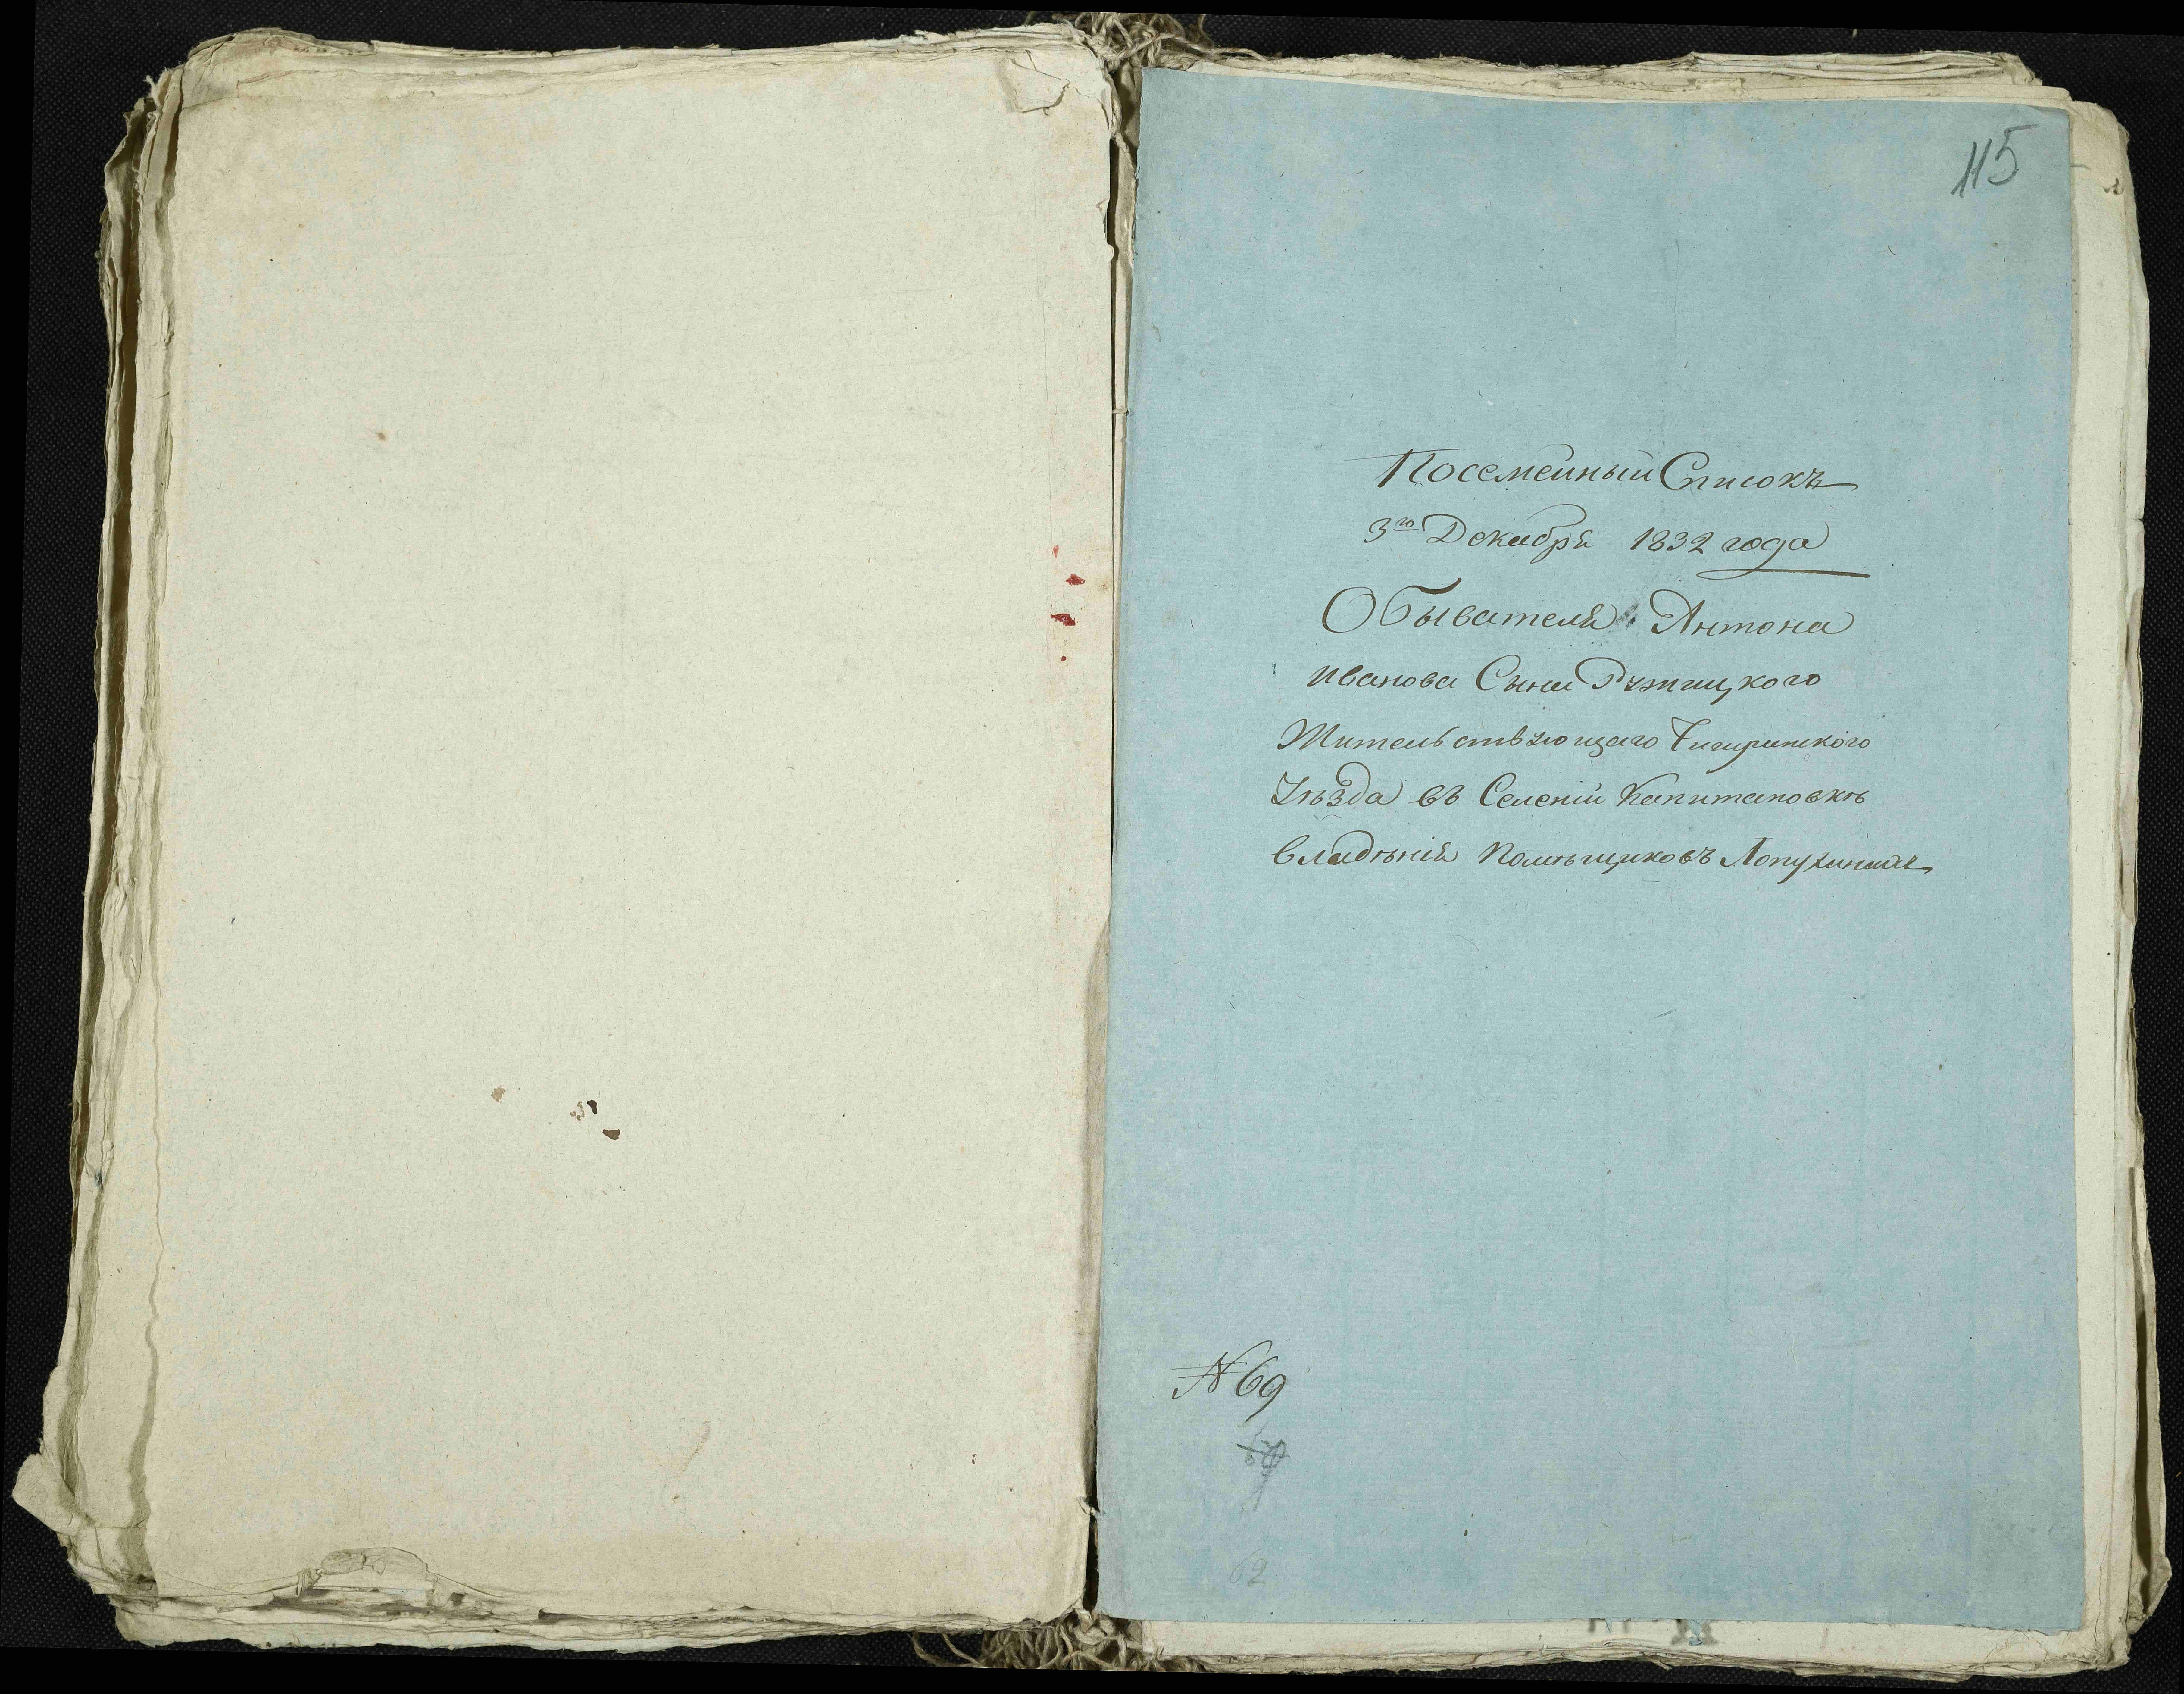 115
Посемейный Списокъ
3го Декабря 1832 года
Обывателя Антона
Иванова Сына Ружицкого
Жительствующаго Чигиринского
Уѣзда въ Селеніи Капитановкѣ
владѣнія Помѣщиковъ Лопухиныхъ
№ 69
62